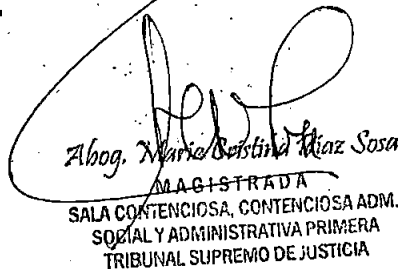 Abog. Maria Cristina Díaz Sosa
MAGISTRADA
SALA CONTENCIOSA, CONTENCIOSA ADM.
SOCIAL Y ADMINISTRATIVA PRIMERA
TRIBUNAL SUPREMO DE JUSTICIA